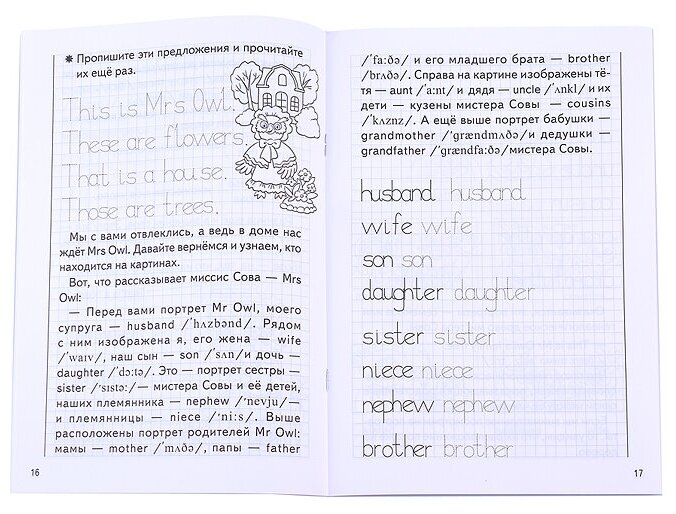 ✷ Пропишите эти предложения и прочитайте
их ещё раз.
This is Mrs Owl.
These are flowers.
That is a house.
Those are trees.
Мы с вами отвлеклись, а ведь в доме нас
ждёт Mrs Owl. Давайте вернёмся и узнаем, кто
находится на картинах.
Вот, что рассказывает миссис Сова — Mrs
Owl:
— Перед вами портрет Mr Owl, моего
супруга — husband /ˈhʌzbənd/. Рядом
с ним изображена я, его жена — wife
/ˈwaıv/, наш сын — son /ˈsʌn/и дочь —
daughter /ˈdɔ:tə/. Это — портрет сестры —
sister /ˈsıstə:/— мистера Совы и её детей,
наших племянника — nephew /ˈnevju/—
и племянницы — niece /ˈni:s/. Выше
расположены портрет родителей Mr Owl:
мамы — mother /ˈmʌðə/, папы — father
16
/ˈfa:ðə/ и его младшего брата — brother
/brʌðə/. Справа на картине изображены тё-
тя — aunt /ˈa:nt/ и дядя — uncle /ˈʌnkl/ и их
дети — кузены мистера Совы — cousins
/ˈkʌznz/. А ещё выше портрет бабушки —
grandmother /ˈgrændmʌðə/и дедушки —
grandfather /ˈgrændfa:ðə/мистера Совы.
husband husband
wife wife
son son
daughter daughter
sister sister
niece niece
nephew nephew
brother brother
17